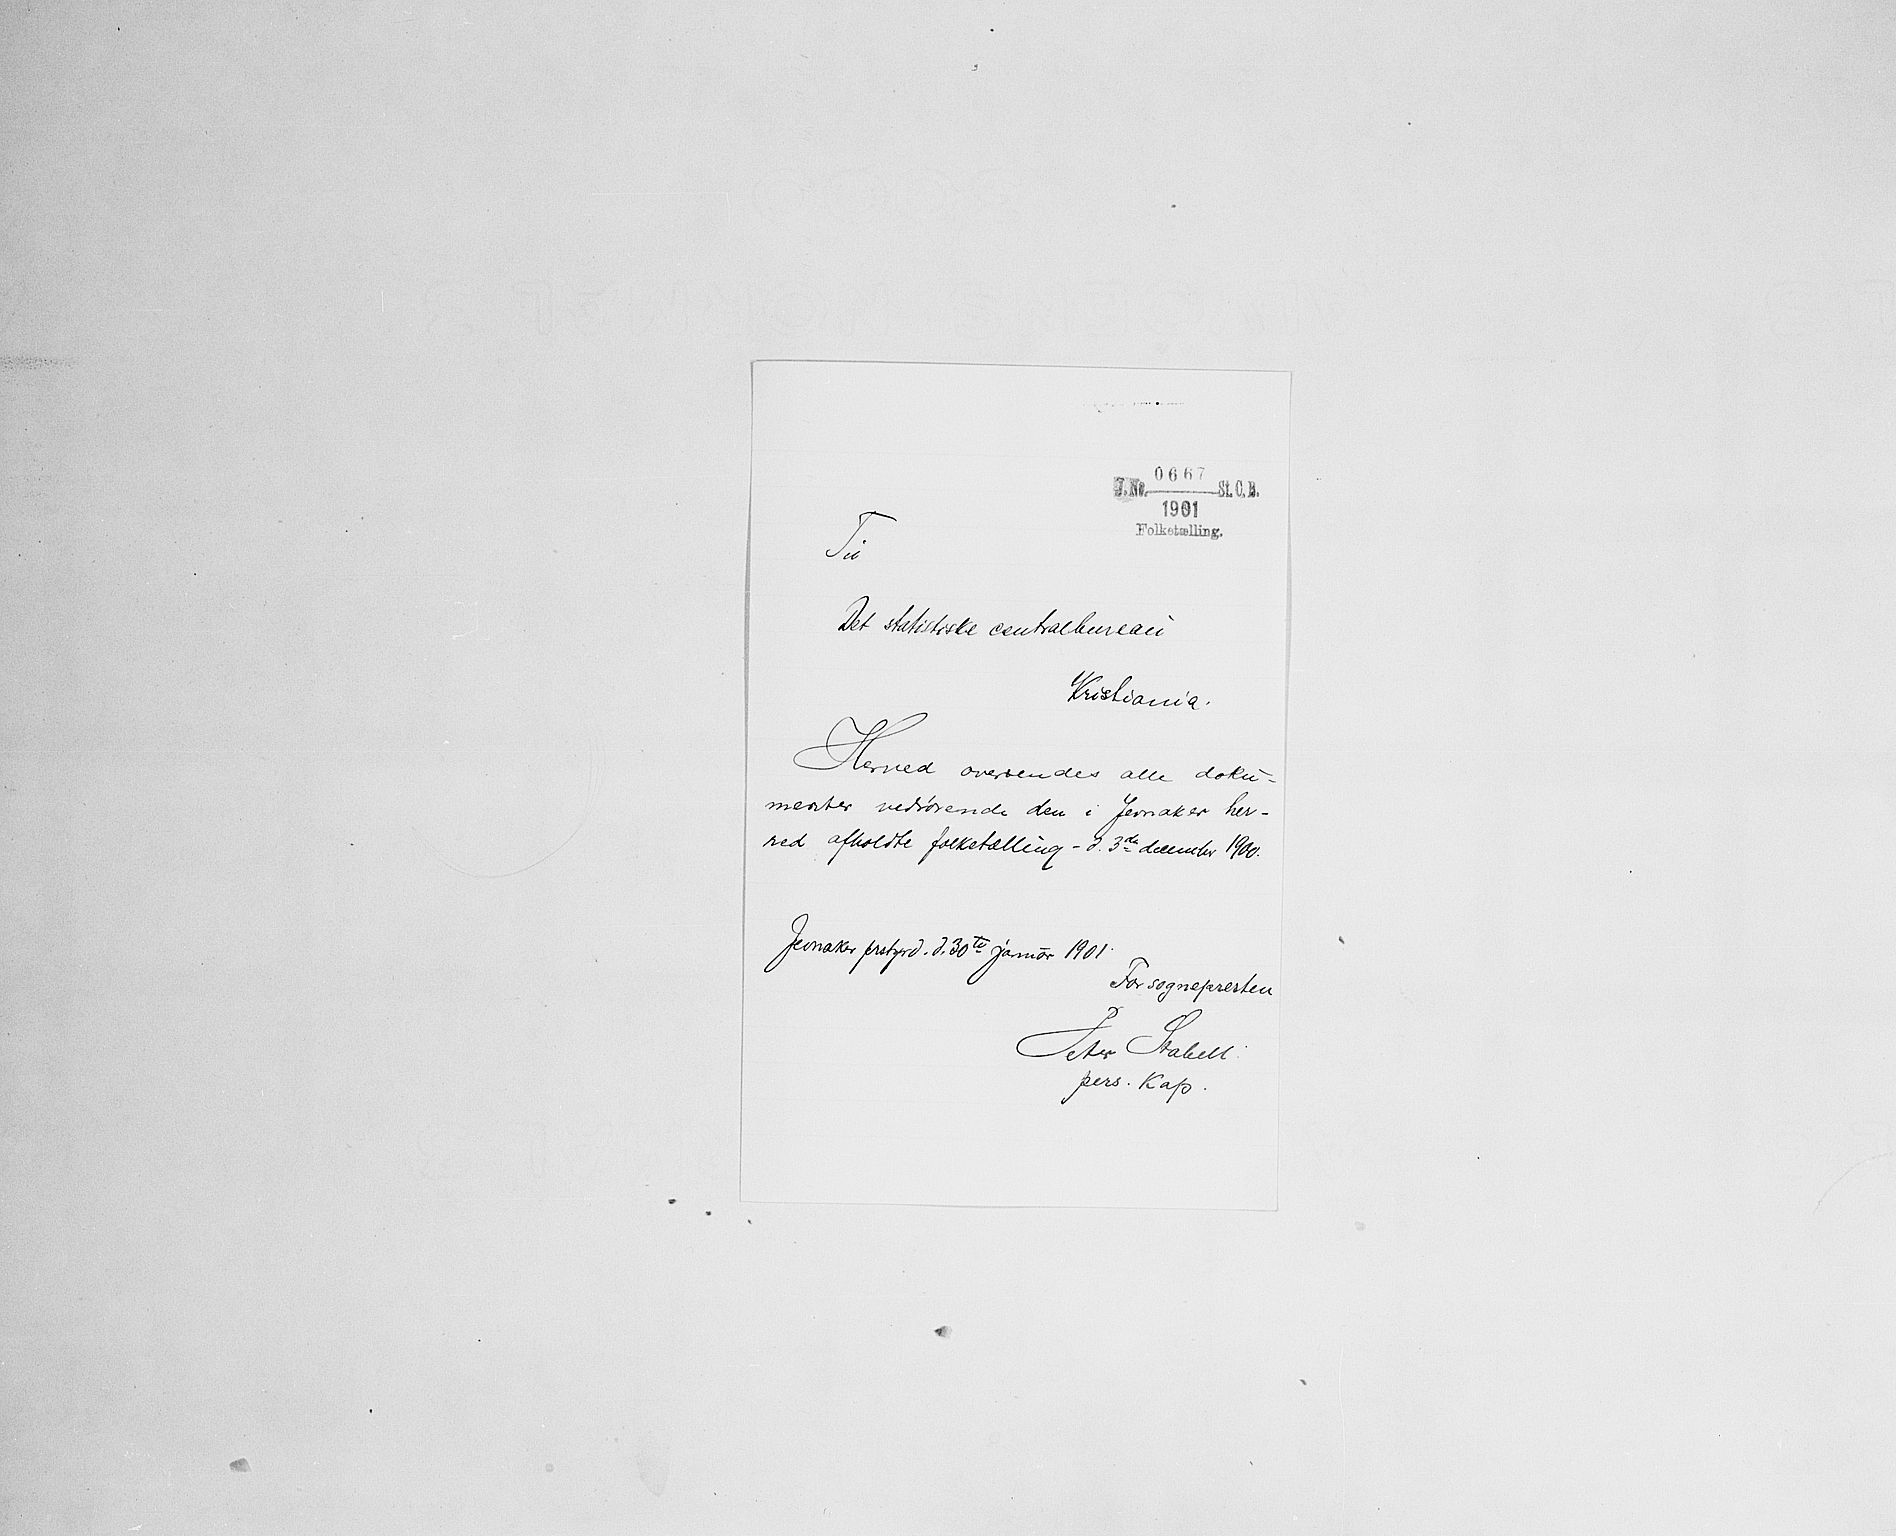 J. No. 0667 St. C. B.
1901
Folketælling.
Til
Det statistiske centralbureau
Kristiania.
Herved oversendes alle doku-
menter vedrörende den i Jevnaker her-
red afholdte folketælling - d. 3de december 1900.
Jevnaker prstgrd. d. 30te januar 1901.
For sognepresten
Peter Stabell.
pers. Kap.